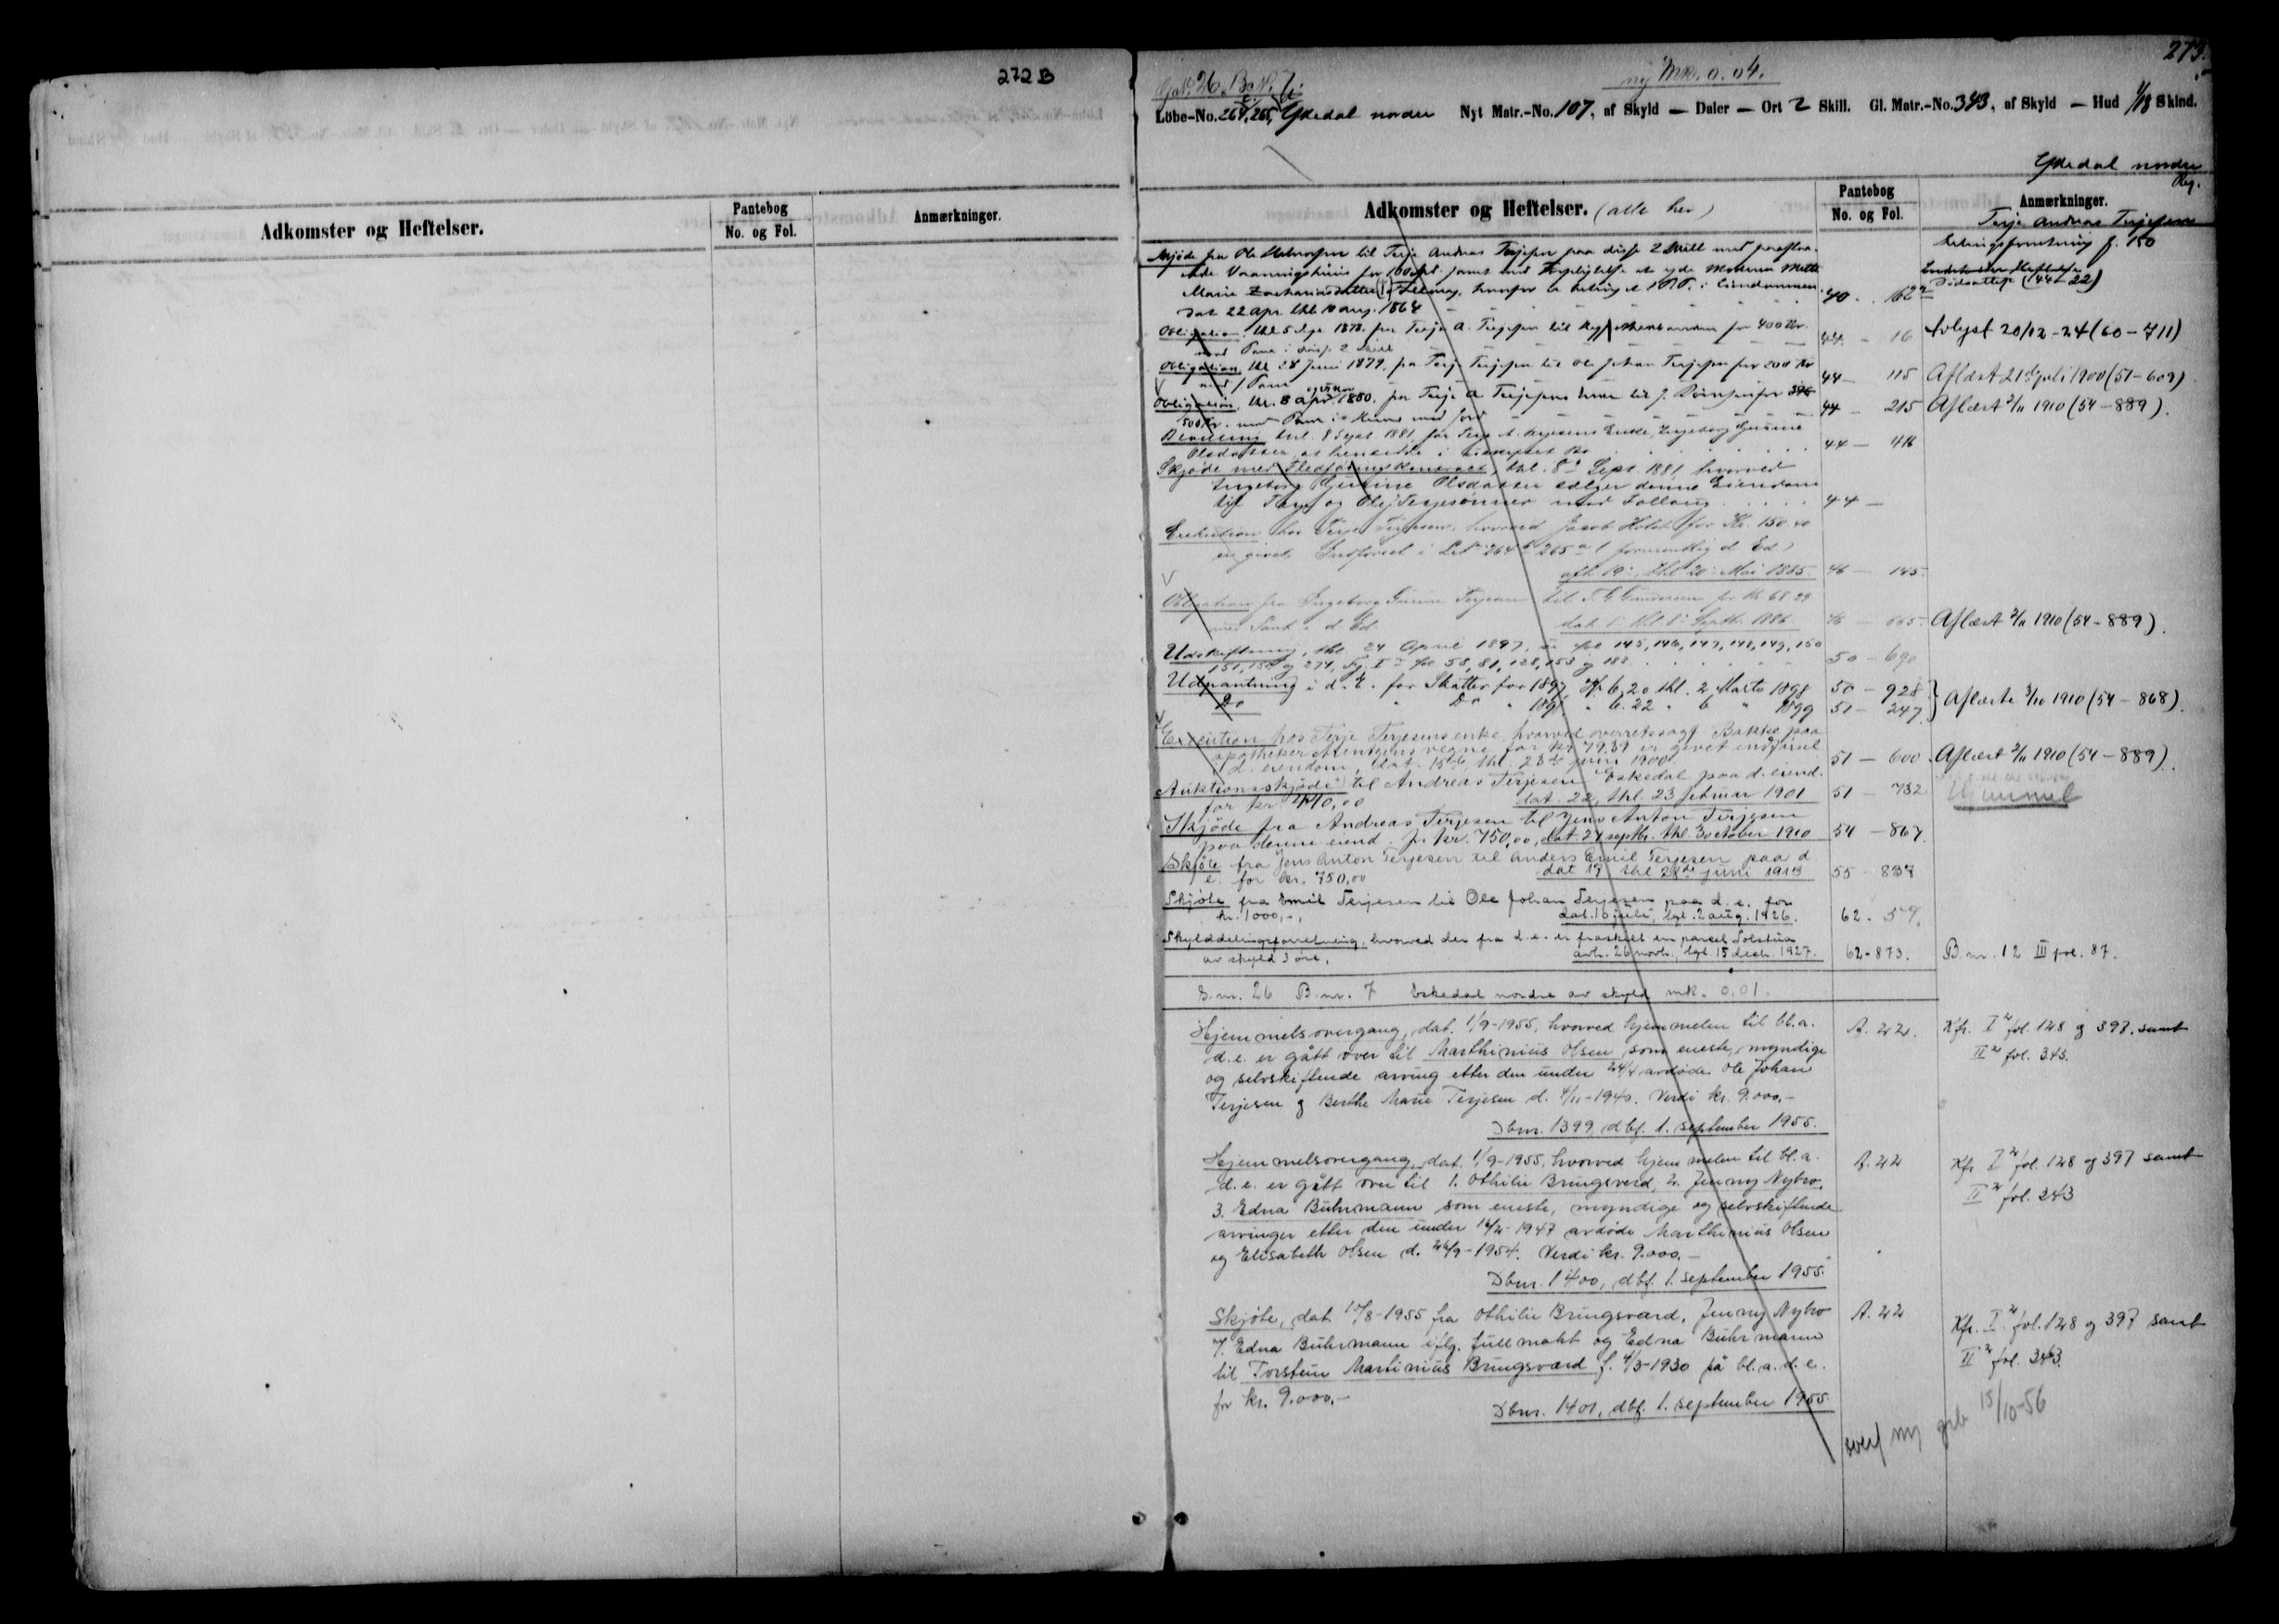 272 B
Adkomster og Heftelser.
Pantebog
No. og Fol.
Anmærkninger.
273.
ny Mk. 0.04.
G.No. 26, B.No. 7.
Löbe-No. 264, 265, Ydedal nordre Nyt Matr.-No. 107, af Skyld — Daler — Ort 2 Skill. Gl. Matr.-No. 343, af Skyld — Hud 1/18 Skind.
Ydedal nordre
Adkomster og Heftelser. (alle her)
Pantebog
No. og Fol.
Anmærkninger.
Terje Andreas Terjesen
Skjöde fra Ole til Terje Andreas Terjesen paa disse 2 Skill med paastaa-
ende Vaaningshuus for 100 Spd. samt med Forpligtelse at yde Moderen Mette
Marie Zachariasdatter
dat 22 Apr. thl 10 Aug. 1864 40 - 162
(44-22)
Obligation thl 5 1878. fra Terje A. Terjesen til for 400 Kr.
med Pant i disse 2 Skill 44 - 16 Avlyst 20/12-24 (60-711)
Obligation, thl 28 Juni 1879. fra Terje Terjesen til Ole Johan Terjesen for 200 Kr
med Pant 44 - 115 Aflæst 21de juli 1900 (51-609)
Obligation, thl. 8 Apr. 1880. fra Terje A Terjesens til J. for
500 Kr. med Pant 44 - 215 Aflæst 2/11 1910 (54-889).
Bevilling thl. 8 Sept. 1881, for Terje A. Terjesens Enke, Ingeborg Gurine
Olsdatter at hensidde i uskiftet Bo 44 - 416
Skjöde med Flödföringskontract, thl. 8de Sept. 1881 hvorved
Ingeborg Gurine Olsdatter sælger denne Eiendom
til Terje og Ole Terjesönner med Follaug 44 —
Exekution hos Terje Terjesen, hvorved Jacob Holst for Kr. 150.40
er givet Indförsel i 264 b 265 a (formentlig d. Ed)
afh. 19de, thl 20de Mai 1885. 46 - 145.
Obligation fra Ingeborg Gurine Terjesen til T. G. Gundersen for Kr 68.29
med Pant i d. Ed. dat. 1 thl 8 Septb. 1886. 46 - 665. Aflæst 2/11 1910 (54-889).
Udskiftning, thl. 24 April 1897, se fol 145, 146, 147, 148, 149, 150
151, 152 og 274, Fg. I fol 58, 81, 128, 153 og 188 50 - 690
Udpantning i d. E. for Skatter for 1897, Kr 6,20 thl. 2 Marts 1898 50 - 928
Do " Do " 1898 " 6.22 " 6 " 1899 51 - 247 } Aflæste 3/10 1910 (54-868).
Execution hos Terje Terjesens enke, hvorved overretssagf. Bakke paa
apotheker Arentzens vegne for kr. 79.39 er givet indförsel
i d. eiendom, dat. 15de, thl. 23de juni 1900. 51 - 600 Aflæst 2/11 1910 (54-889).
Auktionsskjöde til Andreas Terjesen Eskedal paa d. eiend.
for kr. 440,00 dat. 22, thl. 23 februar 1901 51 - 732
Skjöde fra Andreas Terjesen til Jens Anton Terjesen
paa denne eiend. for kr. 750,00, dat. 27 septbr. thl. 3 october 1910 54 - 867
Skjöte fra Jens Anton Terjesen til Anders Emil Terjesen paa d
e. for kr. 750,00 dat 17 thl 28de juni 1913 55 - 837
Skjöte fra Emil Terjesen til Ole Johan Terjesen paa d. e. for
kr. 1000,-, dat. 16 juli, tgl. 2 aug. 1926. 62 - 57.
Skylddelingsforretning, hvorved der fra d. e. er fraskilt en parcel Solstua
av skyld 3 öre, avh. 26 novb., tgl. 15 decb. 1927. 62-873. B. nr. 12 III fol. 87.
G. nr. 26 B. nr. 7 Eskedal nordre av skyld mk. 0,01.
Hjemmelsovergang, dat. 1/9-1955, hvorved hjemmelen til bl.a. A. 22. Kfr. I fol. 128 og 397, samt
d. e. er gått over til Marthinius Olsen, som eneste, myndige II fol. 343.
og selvskiftende arving etter den under 24/4 avdöde Ole Johan
Terjesen og Berthe Marie Terjesen d. 4/11-1940. Verdi kr. 9.000,-
Dbnr. 1399, dbf. 1. september 1955.
Hjemmelsovergang, dat. 1/9-1955, hvorved hjemmelen til bl.a. A. 22 Kfr. I fol. 128 og 397 samt
d. e. er gått over til 1. Othilie Bringsverd, 2. Jenny Nybro, II fol. 343
3. Edna Buhrmann som eneste, myndige og selvskiftende
arvinger etter den under 16/2-1947 avdöde Marthinius Olsen
og Elisabeth Olsen d. 26/9-1954. Verdi kr. 9.000,-
Dbnr. 1400, dbf. 1. september 1955.
Skjöte, dat. 10/8-1955 fra Othilie Bringsværd, Jenny Nybro A. 22 Kfr. I fol. 128 og 397 samt
f. Edna Buhrmann iflg. fullmakt og Edna Buhrmann II fol. 343.
til Torstein Martinius Bringsværd f. 4/3-1930 på bl.a. d. e.
for kr. 9.000,-
Dbnr. 1401, dbf. 1. september 1955.
overf ny grb 15/10-56